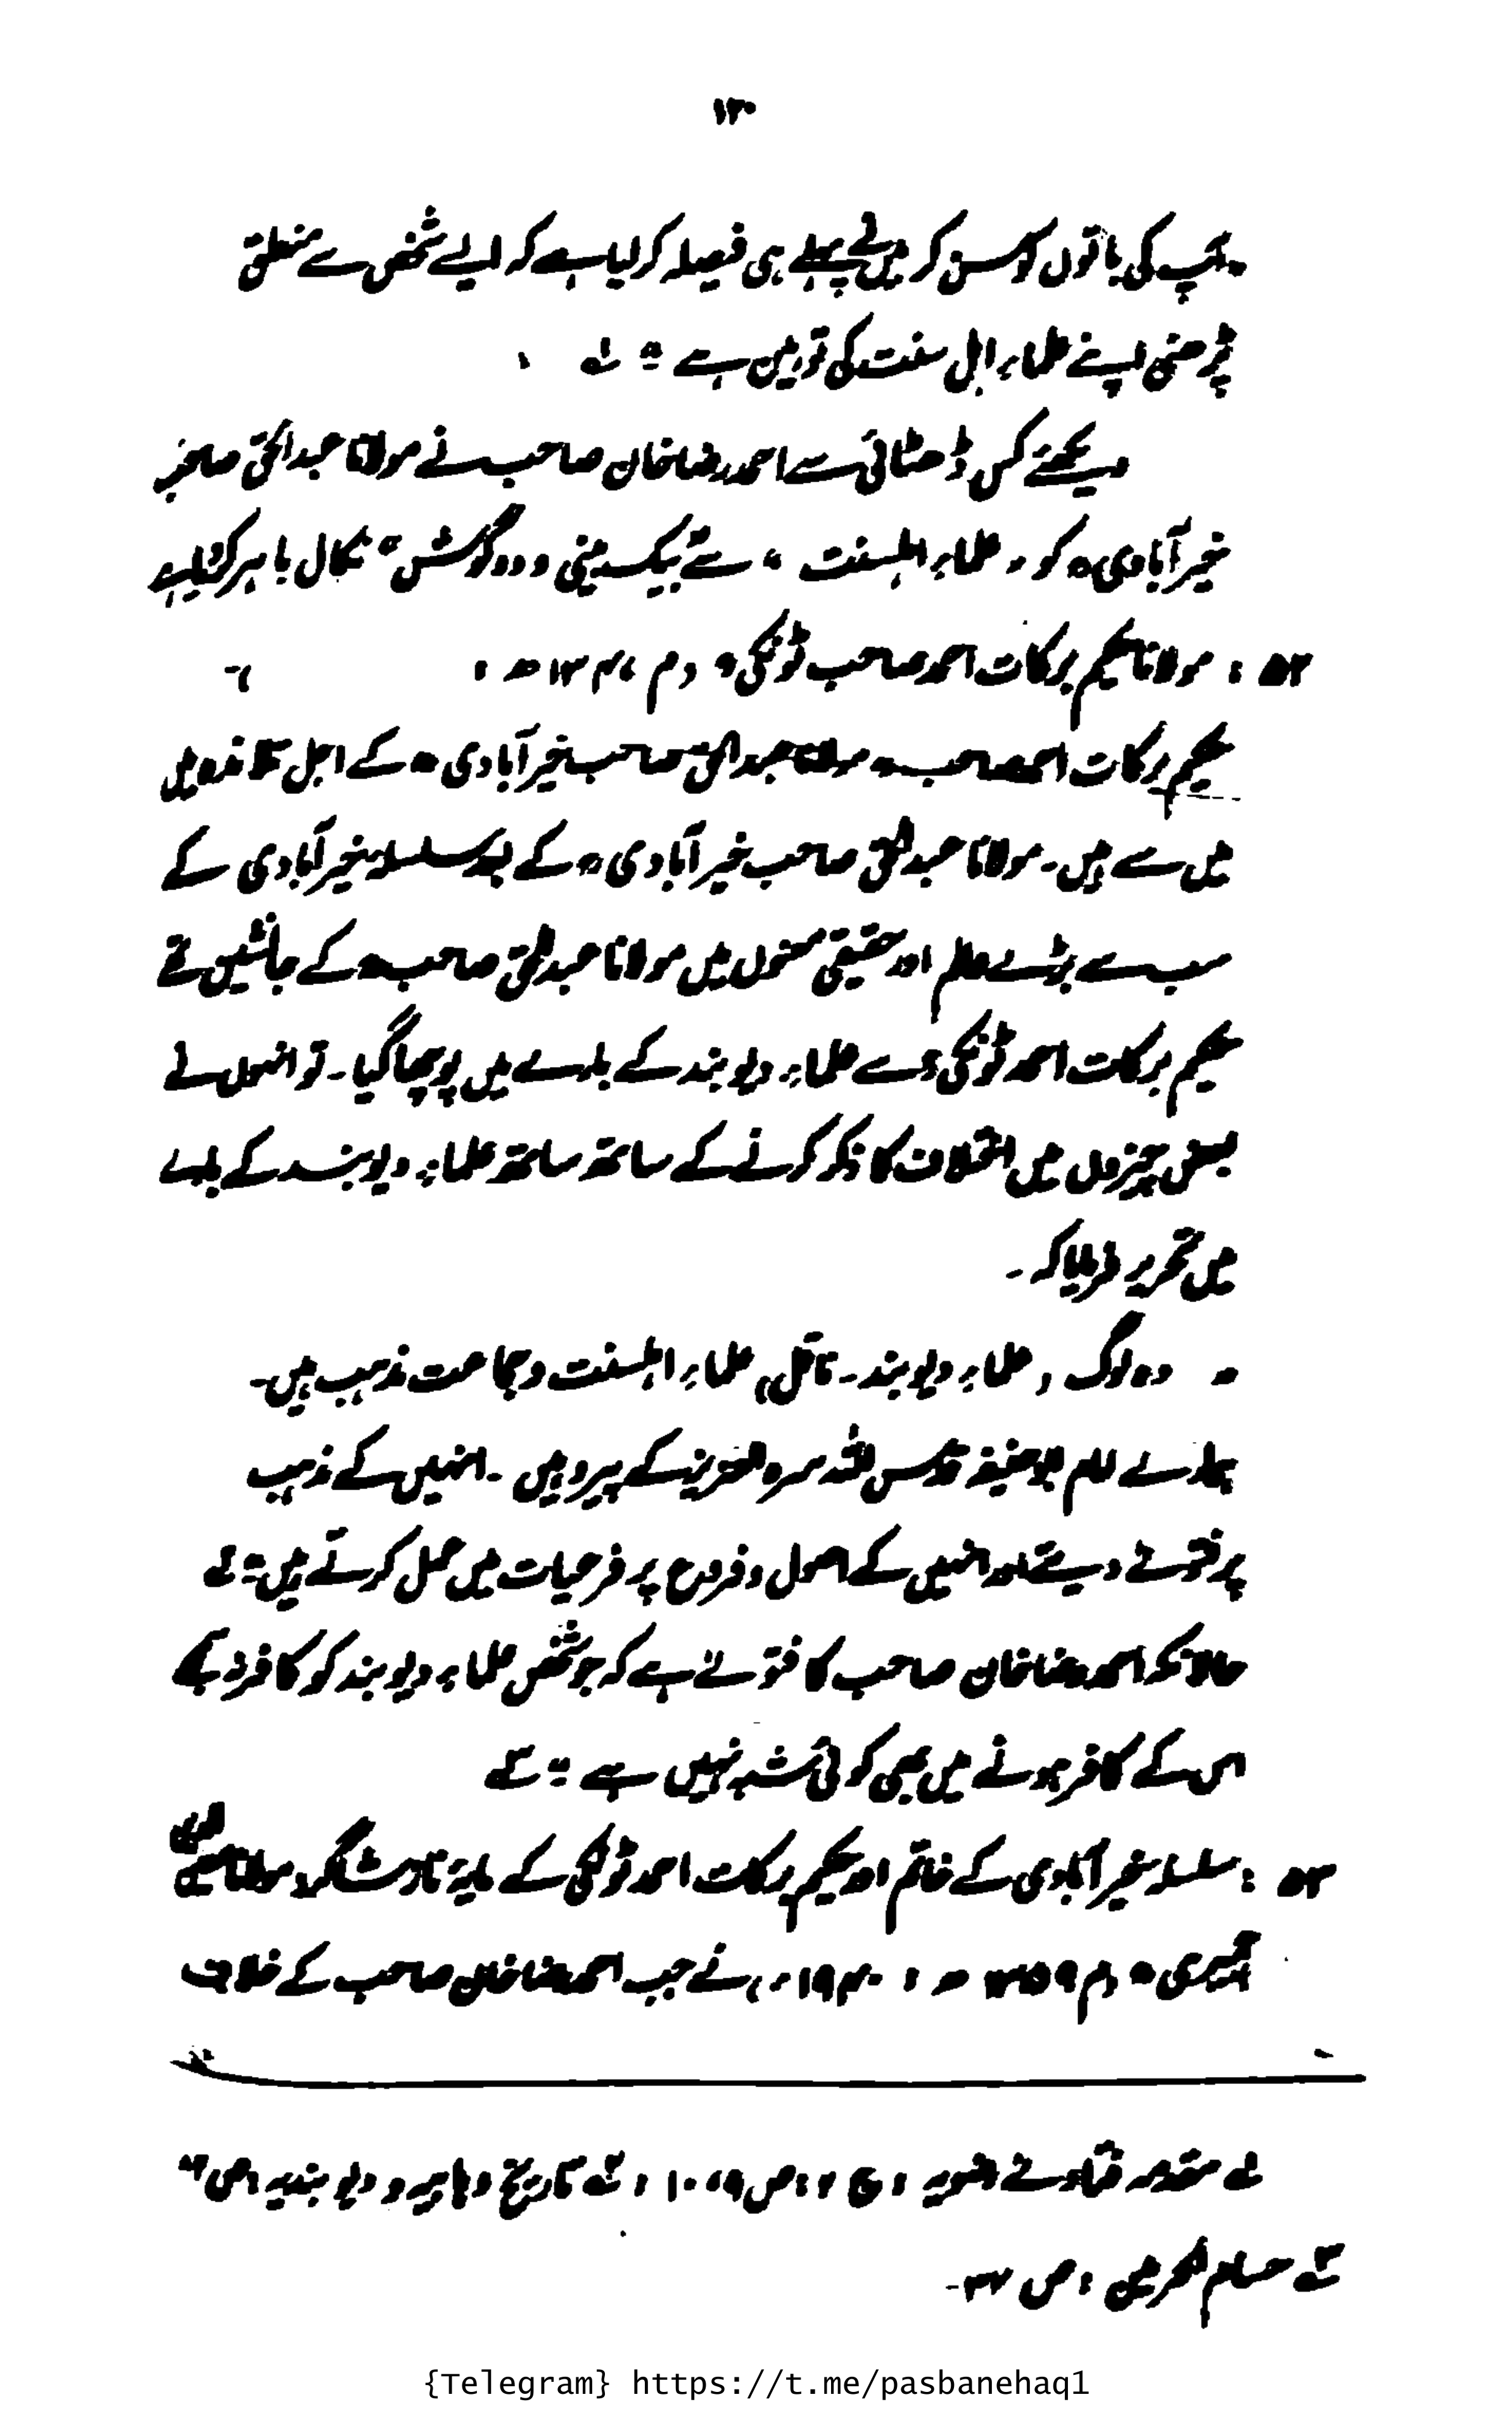 ۱۳۰
آپ کی باتوں کو سن کر میں نے پہلے ہی فیصلہ کر لیا ہے کہ ایسے شخص سے متعلق
اپنے علماء اہل سنت کی توہین ہے "
دیکھئے کس ڈھٹائی سے احمد رضا خان صاحب نے مولانا عبد الحق صاحب
خیر آبادی رح کو "علماء اہلسنت" سے بیک بینی و دو گوش نکال باہر کیا ہے
: مولانا حکیم برکات احمد صاحب ٹونکی رح (م
حکیم برکات احمد صاحب رح مولانا عبد الحق صاحب خیر آبادی رح کے اجل تلامذہ میں
میں سے ہیں۔ مولانا عبد الحق صاحب خیر آبادی رح کے بعد سلسلہ خیر آبادی کے
سب سے بڑے عالم اور حقیقی معنوں میں مولانا عبد الحق صاحب رح کے جانشین تھے
حکیم برکات احمد ٹونکی رح سے علماء دیوبند کے بارے میں پوچھا گیا۔ تو انہوں نے
بعض چیزوں میں اختلاف کا ذکر کرنے کے ساتھ ساتھ علماء دیوبند کے بارے
میں تحریر فرمایا کہ۔
" وہ لوگ (علماء دیوبند۔ ناقل) علماء اہلسنت و جماعت مذہب ہیں۔
ہمارے امام ابو حنیفہ قدس اللہ سرہ العزیز کے پیرو ہیں۔ انہیں کے مذہب
پر فتوے دیتے اور انہیں کے اصول و فروع پر فرعیات میں عمل کرتے ہیں" ۲ے
حالانکہ احمد رضا خان صاحب کا فتوے ہے کہ جو شخص علماء دیوبند کو کافر نہ کہے
اس کے کافر ہونے میں بھی کوئی شبہ نہیں ہے" ۳ے
: سلسلہ خیر آبادی کے خاتم اور حکیم برکات احمد ٹونکی کے مایہ ناز شاگرد مولانا معین الدین
اجمیری رح (م ۱۳۵۹ھ ؛ ۱۹۴۰ء) نے جب احمد رضا خان صاحب کے خلاف
۱ے مقدمہ فتاوے رضویہ : ج ۱ : ص ؛ ۲ے تاریخ وہابیہ و دیوبندیہ : ص
۳ے حسام الحرمین : ص
{Telegram} https://t.me/pasbanehaq1